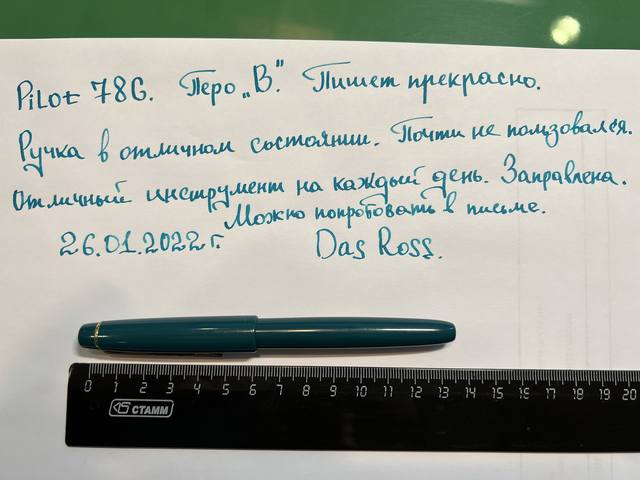 Pilot 78G. Перо „В." Пишет прекрасно.
Ручка в отличном состоянии. Почти не пользовался.
Отличный инструмент на каждый день. Заправлена.
Можно попробовать в письме.
26.01.2022г. Das Ross.
0 1 2 3 4 5 6 7 8 9 10 11 12 13 14 15 16 17 18 19 20
СТАММ